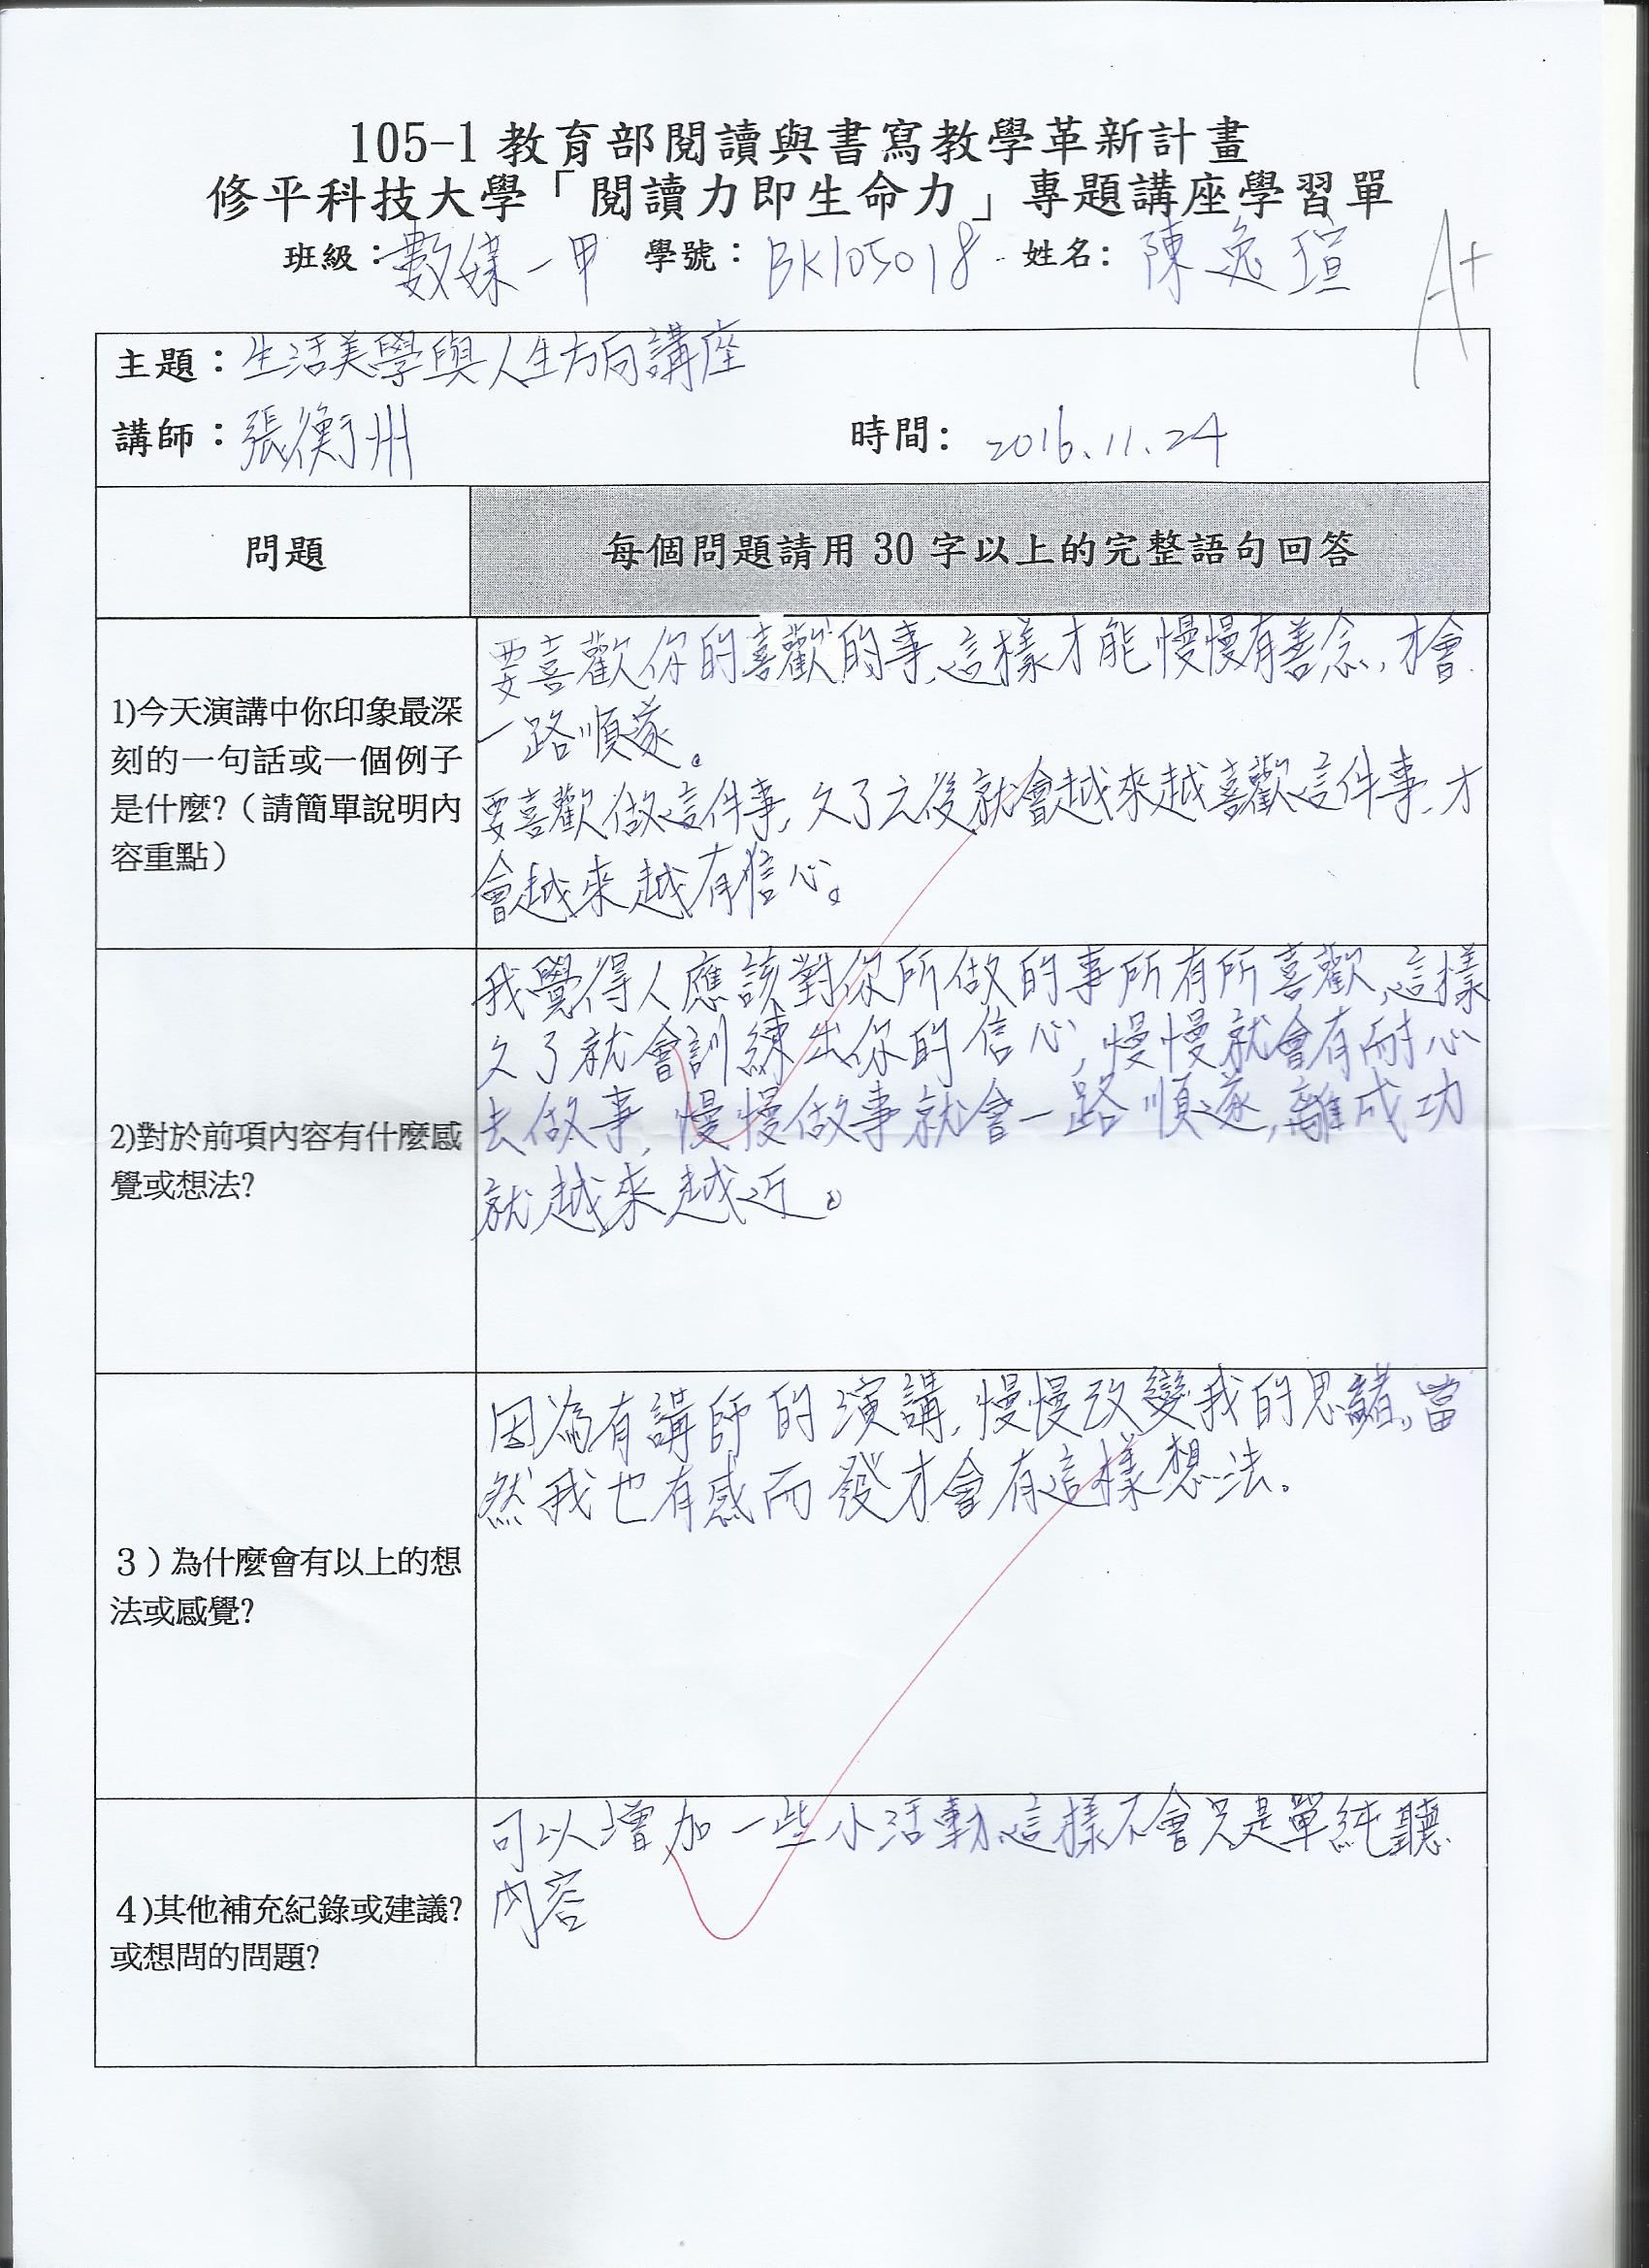 105-1 教育部閱讀與書寫教學革新計畫
修平科技大學「閱讀力即生命力」專題講座學習單
班級：數媒一甲 學號：BK105018 姓名：陳逸瑄
A+
主題：生活美學與人生方向講座
講師：張衡州 時間：2016.11.24
問題
每個問題請用 30 字以上的完整語句回答
1)今天演講中你印象最深
刻的一句話或一個例子
是什麼?（請簡單說明內
容重點）
要喜歡你的喜歡的事,這樣才能慢慢有善念,才會
一路順遂。
要喜歡做這件事,久了之後就會越來越喜歡這件事,才
會越來越有信心。
2)對於前項內容有什麼感
覺或想法?
我覺得人應該對你所做的事所有所喜歡,這樣
久了就會訓練出你的信心,慢慢就會有耐心
去做事,慢慢做事就會一路順遂,離成功
就越來越近。
3）為什麼會有以上的想
法或感覺?
因為有講師的演講,慢慢改變我的思緒,當
然我也有感而發才會有這樣想法。
4)其他補充紀錄或建議?
或想問的問題?
可以增加一些小活動,這樣不會只是單純聽
內容